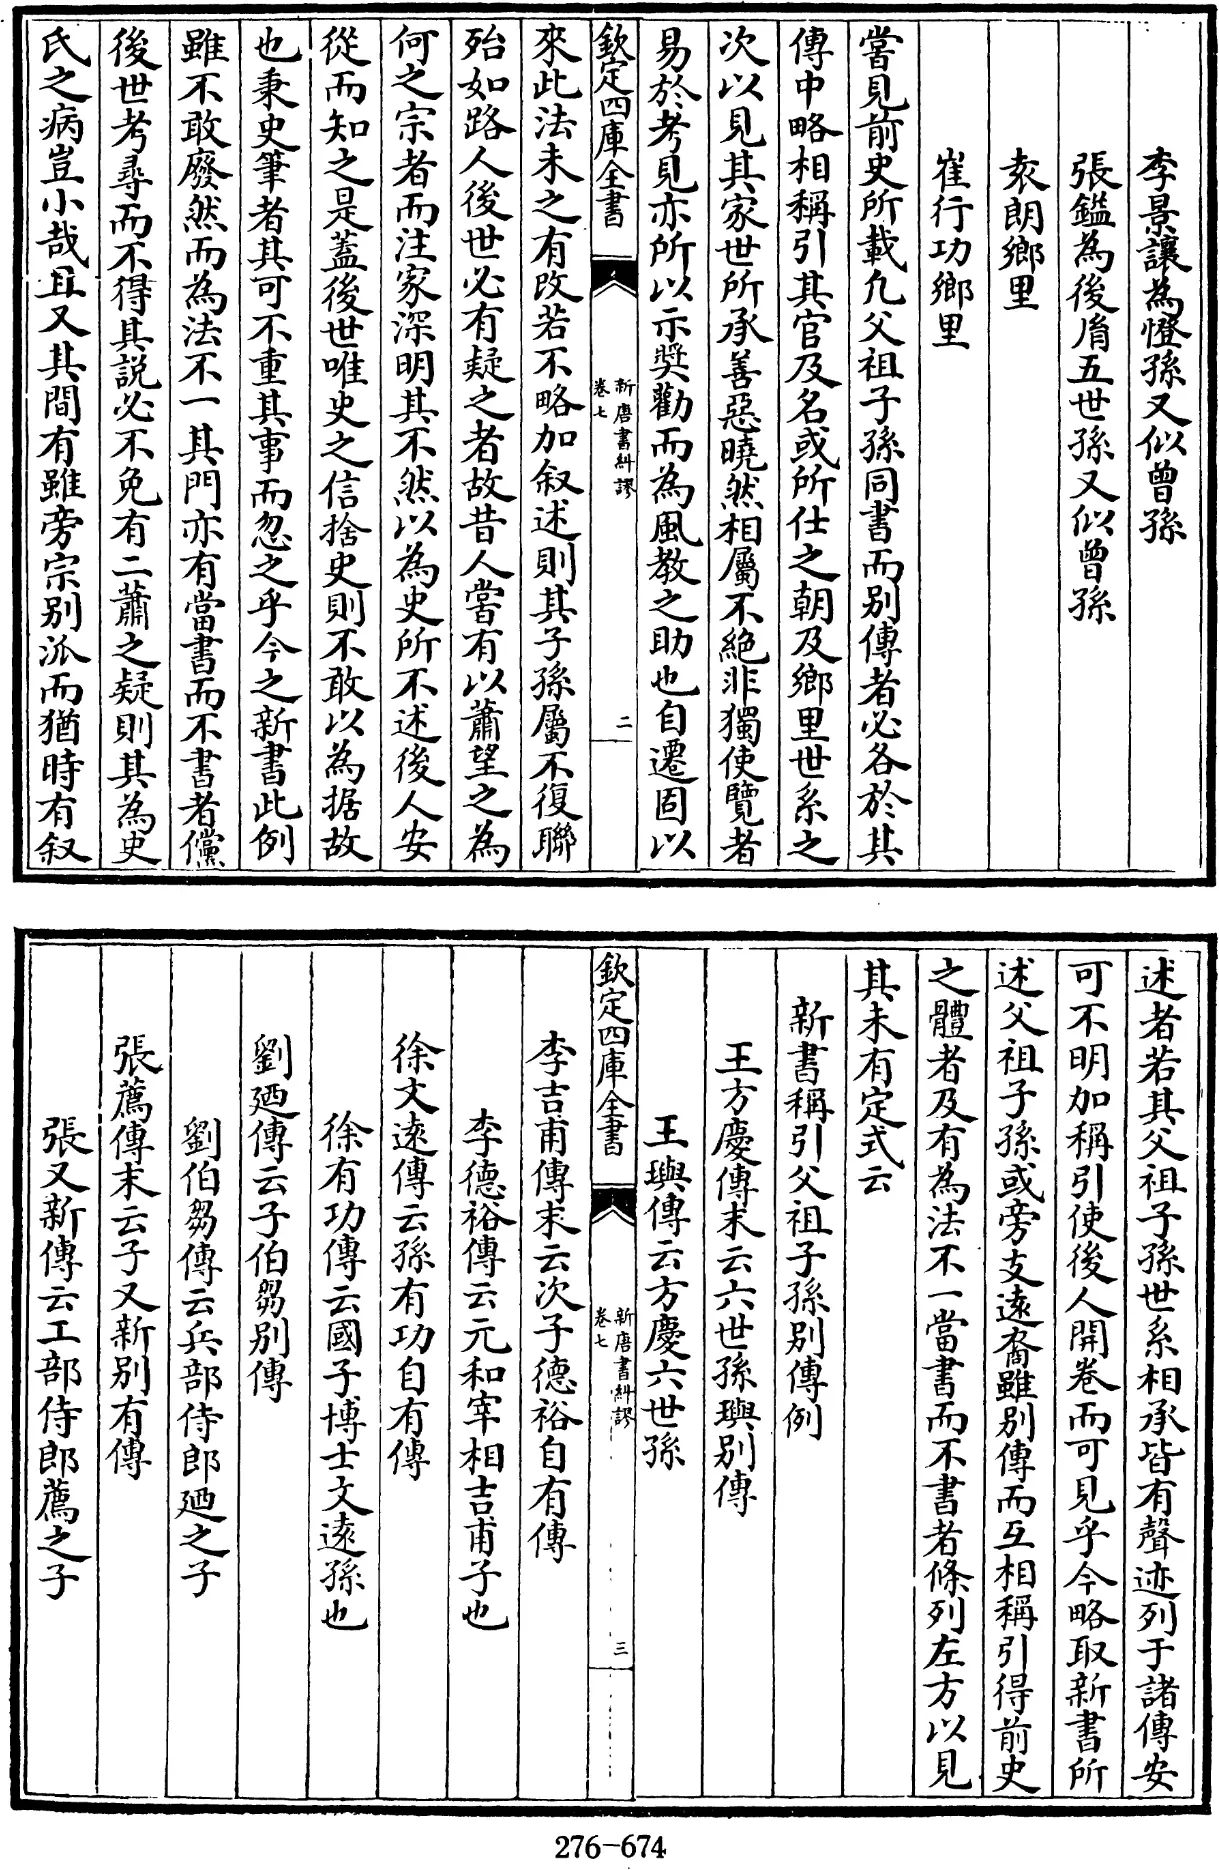 李景讓為憕孫又似曾孫
張鎰為後胤五世孫又似曾孫
袁朗鄉里
崔行功鄉里
嘗見前史所載凡父祖子孫同書而别傳者必各於其
傳中略相稱引其官及名或所仕之朝及鄉里世系之
次以見其家世所承善惡曉然相屬不絶非獨使覽者
易於考見亦所以示奨勸而為風教之助也自遷固以
欽定四庫全書
新唐書糾謬
卷七
二
來此法未之有改若不略加叙述則其子孫屬不復聯
殆如路人後世必有疑之者故昔人嘗有以蕭望之為
何之宗者而注家深明其不然以為史所不述後人安
從而知之是蓋後世唯史之信捨史則不敢以為据故
也秉史筆者其可不重其事而忽之乎今之新書此例
雖不敢廢然而為法不一其門亦有當書而不書者儻
後世考尋而不得其説必不免有二蕭之疑則其為史
氏之病豈小哉且又其間有雖旁宗别派而猶時有叙
述者若其父祖子孫世系相承皆有聲迹列于諸傳安
可不明加稱引使後人開卷而可見乎今略取新書所
述父祖子孫或旁支遠裔雖别傳而互相稱引得前史
之體者及有為法不一當書而不書者條列左方以見
其未有定式云
新書稱引父祖子孫别傳例
王方慶傳末云六世孫璵别傳
王璵傳云方慶六世孫
欽定四庫全書
新唐書糾謬
卷七
三
李吉甫傳末云次子德裕自有傳
李德裕傳云元和宰相吉甫子也
徐文遠傳云孫有功自有傳
徐有功傳云國子博士文遠孫也
劉廼傳云子伯芻别傳
劉伯芻傳云兵部侍郎廼之子
張薦傳末云子又新别有傳
張又新傳云工部侍郎薦之子
276-674